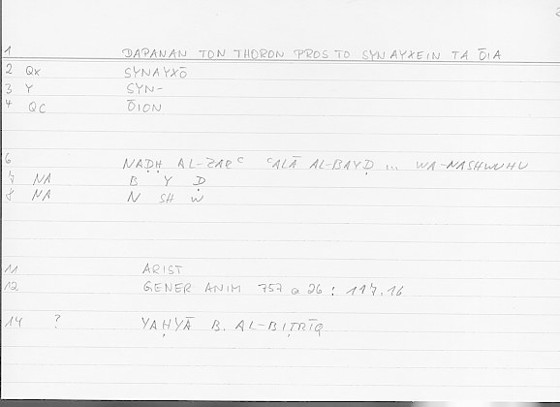 1 DAPANAN TON THORON PROS TO SYNAYXEIN TA ŌIA
2 Qx SYNAYXŌ
3 Y SYN-
4 QC ŌION
6 NAḌḤ AL-ZARᶜ ᶜALĀ AL-BAYḌ ... WA-NASHWUHU
7 NA B Y Ḍ
8 NA N SH W
11 ARIST
12 GENER ANIM 757 a 26 : 117.16
14 ? YAḤYĀ B. AL-BIṬRĪQ